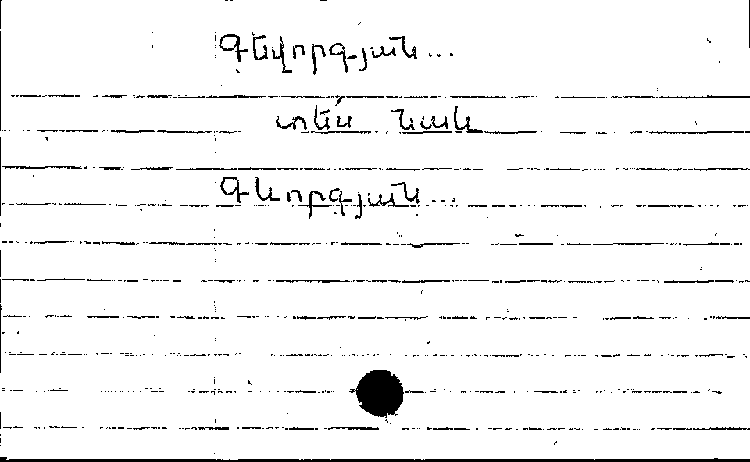 Գեվորգյան...
տե՛ս նաև
Գևորգյան...